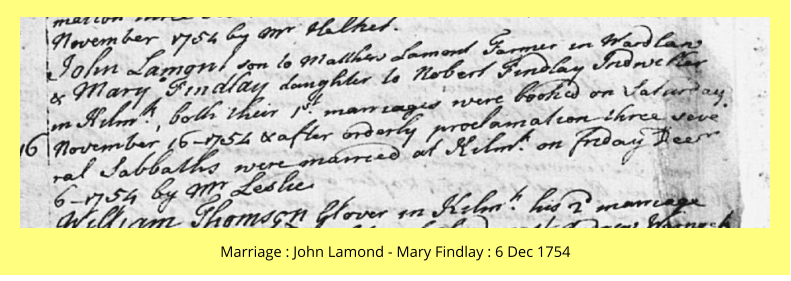 November 1754 by Mr Helket.
John Lamont son to Matthew Lamont Farmer in Wardlaw
& Mary Findlay daughter to Robert Findlay Indweller
in Kilmk, both their 1st marriages were booked on Saturday
16 November 16-1754 & after orderly proclamation three seve
ral Sabbaths were married at Kilmk on Friday Decr
6-1754 by Mr Leslie
William Thomson Glover in Kilmk his 2d marriage
Marriage : John Lamond - Mary Findlay : 6 Dec 1754